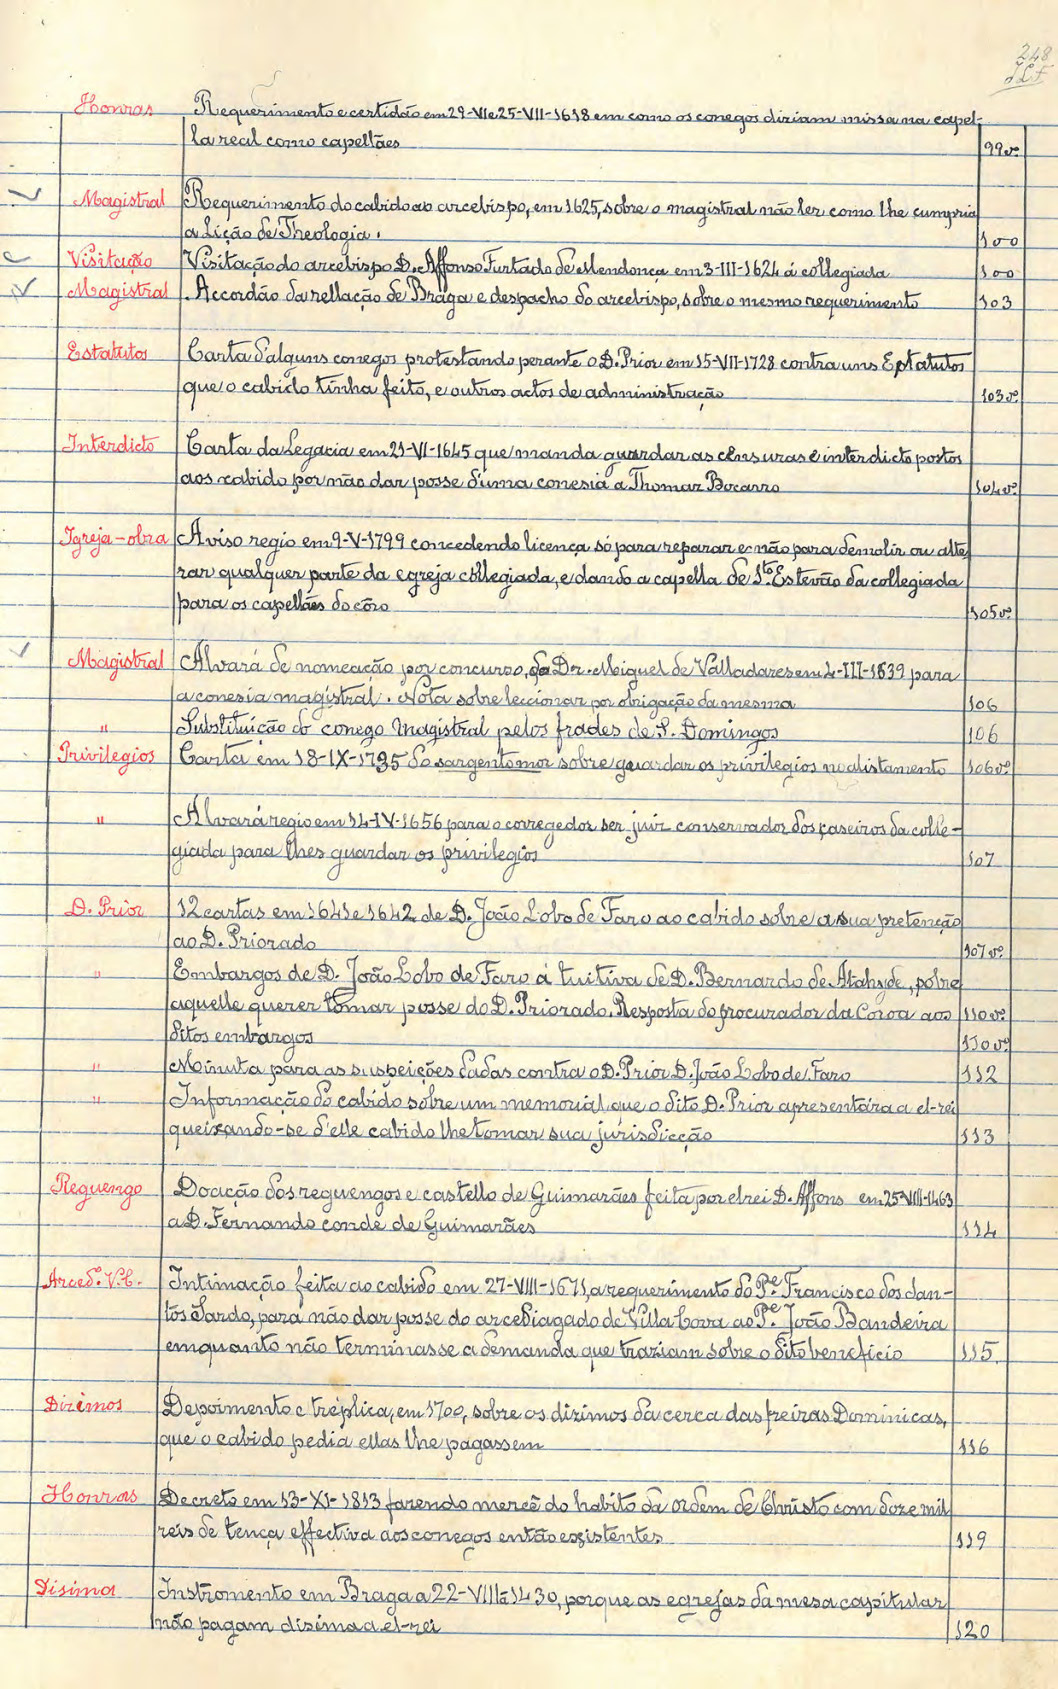 248
Honras Requerimento e certidão em 29-VI e 25-VII-1618 em como os conegos diziam missa na capel-
la real como capellães 99vº
Magistral Requerimento do cabido ao arcebispo, em 1625, sobre o magistral não ler como lhe cumpria
a Lição de Theologia. 100
Visitação Visitação do arcebispo D. Affonso Furtado de Mendonça em 3-III-1624 á collegiada 100
Magistral Accordão da rellação de Braga e despacho do arcebispo, sobre o mesmo requerimento 103
Estatutos Carta d'alguns conegos protestando perante o D. Prior em 15-VII-1728 contra uns Estatutos
que o cabido tinha feito, e outros actos de administração 103vº
Interdicto Carta da Legacia em 21-VI-1645 que manda guardar as censuras e interdicto postos
aos cabido por não dar posse d'uma conesia a Thomaz Bocarro 104vº
Igreja-obra Aviso regio em 9-V-1799 concedendo licença só para reparar e não para demolir ou alte
rar qualquer parte da egreja collegiada, e dando a capella de Stº Estevão da collegiada
para os capellães do côro 105vº
Magistral Alvará de nomeação por concurso, do Dr. Miguel de Valladares em 4-III-1639 para
a conesia magistral. Nota sobre leccionar por obrigação da mesma 106
" Substituição do conego Magistral pelos frades de S. Domingos 106
Privilegios Carta em 18-IX-1735 do sargento mor sobre guardar os privilegios no alistamento 106vº
" Alvará regio em 14-IV-1656 para o corregedor ser juiz conservador dos caseiros da colle-
giada para lhes guardar os privilegios 107
D. Prior 12 cartas em 1641 e 1642 de D. João Lobo de Faro ao cabido sobre a sua pretenção
ao D. Priorado 107vº
" Embargos de D. João Lobo de Faro á tuitiva de D. Bernardo de Atahyde, sobre
aquelle querer tomar posse do D. Priorado. Resposta do procurador da Coroa aos 110vº
ditos embargos 110vº
" Minuta para as suspeições dadas contra o D. Prior D. João Lobo de Faro 112
" Informação do cabido sobre um memorial que o dito D. Prior apresentára a el-rei
queixando-se d'elle cabido lhe tomar sua jurisdicção 113
Reguengo Doação dos reguengos e castello de Guimarães feita por el rei D. Affons em 25-VIII-1463
a D. Fernando conde de Guimarães 114
Arced.º V.C. Intimação feita ao cabido em 27-VIII-1671, a requerimento do Pe. Francisco dos San-
tos Sardo, para não dar posse do arcediagado de Villa Cova ao Pe. João Bandeira
emquanto não terminasse a demanda que traziam sobre o dito beneficio 115
Dizimos Depoimento e tréplica, em 1700, sobre os dizimos da cerca das freiras Dominicas,
que o cabido pedia ellas lhe pagassem 116
Honras Decreto em 13-XI-1813 fazendo mercê do habito da ordem de Christo com doze mil
reis de tença effectiva aos conegos então existentes 119
Disima Instromento em Braga a 22-VIII-1430, porque as egrejas da mesa capitular
não pagam disima a el-rei 120